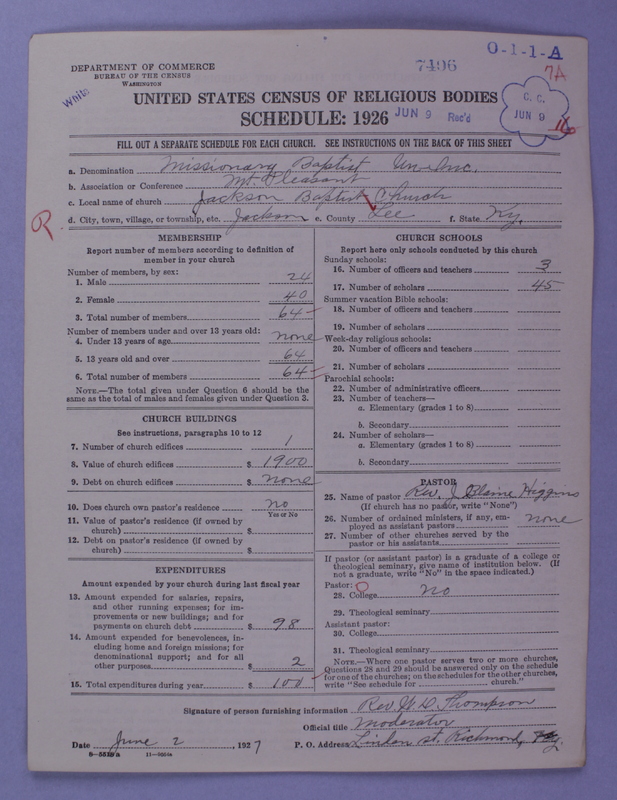 O-1-1-A
7496
7A
DEPARTMENT OF COMMERCE
BUREAU OF THE CENSUS
WASHINGTON
White
C. C.
JUN 9
UNITED STATES CENSUS OF RELIGIOUS BODIES
SCHEDULE: 1926
JUN 9 Rec'd
FILL OUT A SEPARATE SCHEDULE FOR EACH CHURCH. SEE INSTRUCTIONS ON THE BACK OF THIS SHEET
a. Denomination Missionary Baptist
b. Association or Conference Mt. Pleasant
c. Local name of church Jackson Baptist Church
R
d. City, town, village, or township, etc. Jackson e. County Lee f. State Ky.
MEMBERSHIP
Report number of members according to definition of
member in your church
Number of members, by sex:
1. Male 24
2. Female 40
3. Total number of members 64
Number of members under and over 13 years old:
4. Under 13 years of age none
5. 13 years old and over 64
6. Total number of members 64
NOTE.—The total given under Question 6 should be the
same as the total of males and females given under Question 3.
CHURCH BUILDINGS
See instructions, paragraphs 10 to 12
7. Number of church edifices 1
8. Value of church edifices $ 1900
9. Debt on church edifices $ none
10. Does church own pastor's residence no
Yes or No
11. Value of pastor's residence (if owned by
church) $
12. Debt on pastor's residence (if owned by
church) $
EXPENDITURES
Amount expended by your church during last fiscal year
13. Amount expended for salaries, repairs,
and other running expenses; for im-
provements or new buildings; and for
payments on church debt $ 98
14. Amount expended for benevolences, in-
cluding home and foreign missions; for
denominational support; and for all
other purposes $ 2
15. Total expenditures during year $ 100
CHURCH SCHOOLS
Report here only schools conducted by this church
Sunday schools:
16. Number of officers and teachers 3
17. Number of scholars 45
Summer vacation Bible schools:
18. Number of officers and teachers
19. Number of scholars
Week-day religious schools:
20. Number of officers and teachers
21. Number of scholars
Parochial schools:
22. Number of administrative officers
23. Number of teachers—
a. Elementary (grades 1 to 8)
b. Secondary
24. Number of scholars—
a. Elementary (grades 1 to 8)
b. Secondary
PASTOR
25. Name of pastor Rev. J Blaine Higgins
(If church has no pastor, write "None")
26. Number of ordained ministers, if any, em-
ployed as assistant pastors none
27. Number of other churches served by the
pastor or his assistants
If pastor (or assistant pastor) is a graduate of a college or
theological seminary, give name of institution below. (If
not a graduate, write "No" in the space indicated.)
Pastor:
28. College no
29. Theological seminary
Assistant pastor:
30. College
31. Theological seminary
NOTE.—Where one pastor serves two or more churches,
Questions 28 and 29 should be answered only on the schedule
for one of the churches; on the schedules for the other churches,
write "See schedule for church."
Signature of person furnishing information Rev W. D. Thompson
Official title Moderator
Date June 2, 1927 P. O. Address Linden st. Richmond, Ky.
8—5519a 11—9664a